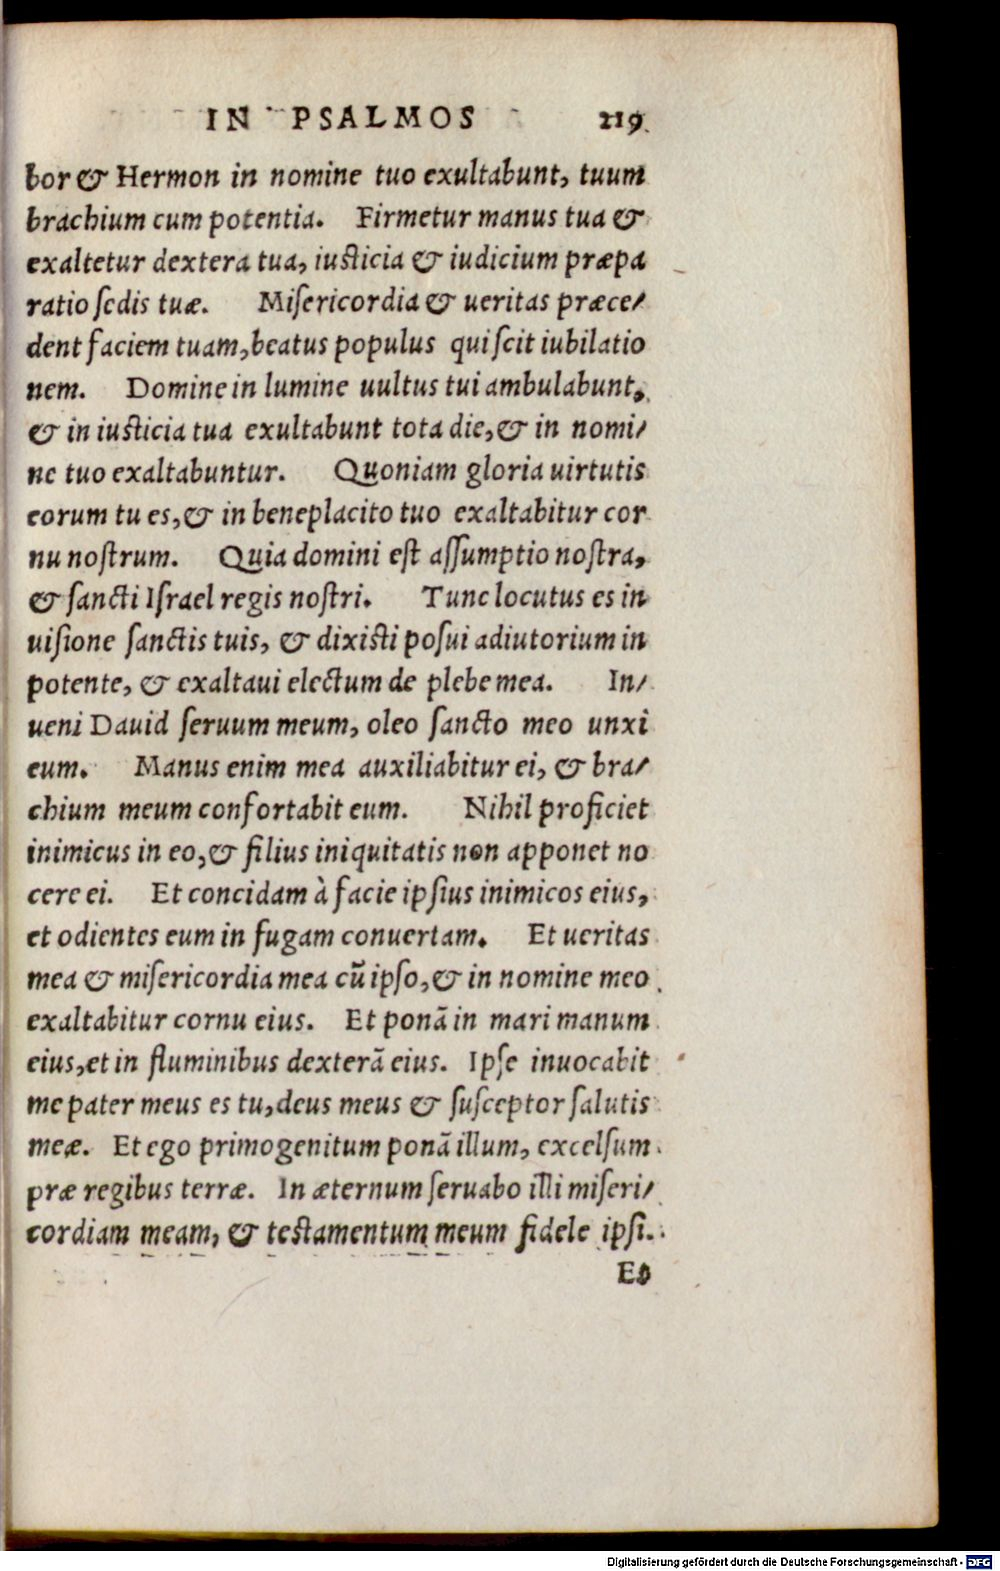 IN PSALMOS 219
bor & Hermon in nomine tuo exultabunt, tuum
brachium cum potentia. Firmetur manus tua &
exaltetur dextera tua, iusticia & iudicium præpa
ratio sedis tuæ. Misericordia & ueritas præce/
dent faciem tuam, beatus populus qui scit iubilatio
nem. Domine in lumine uultus tui ambulabunt,
& in iusticia tua exultabunt tota die, & in nomi/
ne tuo exaltabuntur. Quoniam gloria uirtutis
eorum tu es, & in beneplacito tuo exaltabitur cor
nu nostrum. Quia domini est assumptio nostra,
& sancti Israel regis nostri. Tunc locutus es in
uisione sanctis tuis, & dixisti posui adiutorium in
potente, & exaltaui electum de plebe mea. In/
ueni Dauid seruum meum, oleo sancto meo unxi
eum. Manus enim mea auxiliabitur ei, & bra/
chium meum confortabit eum. Nihil proficiet
inimicus in eo, & filius iniquitatis non apponet no
cere ei. Et concidam à facie ipsius inimicos eius,
et odientes eum in fugam conuertam. Et ueritas
mea & misericordia mea cũ ipso, & in nomine meo
exaltabitur cornu eius. Et ponã in mari manum
eius, et in fluminibus dexterã eius. Ipse inuocabit
me pater meus es tu, deus meus & susceptor salutis
meæ. Et ego primogenitum ponã illum, excelsum
præ regibus terræ. In æternum seruabo illi miseri/
cordiam meam, & testamentum meum fidele ipsi.
Digitalisierung gefördert durch die Deutsche Forschungsgemeinschaft - DFG